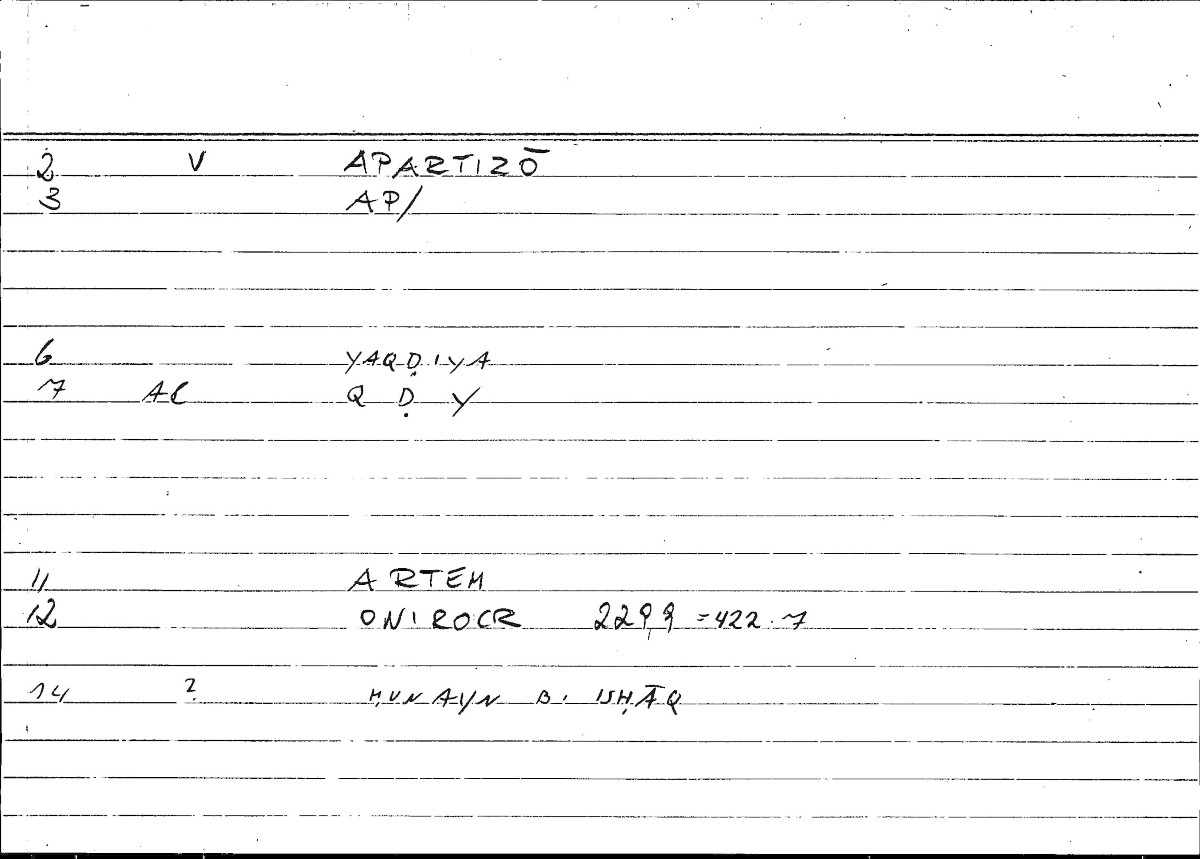 2 V APARTIZŌ
3 AP/
6 YAQḌIYA
7 AC Q Ḍ Y
11 ARTEM
12 ONIROCR 229,9 = 422.7
14 2 ḤUNAYN B. ISḤĀQ